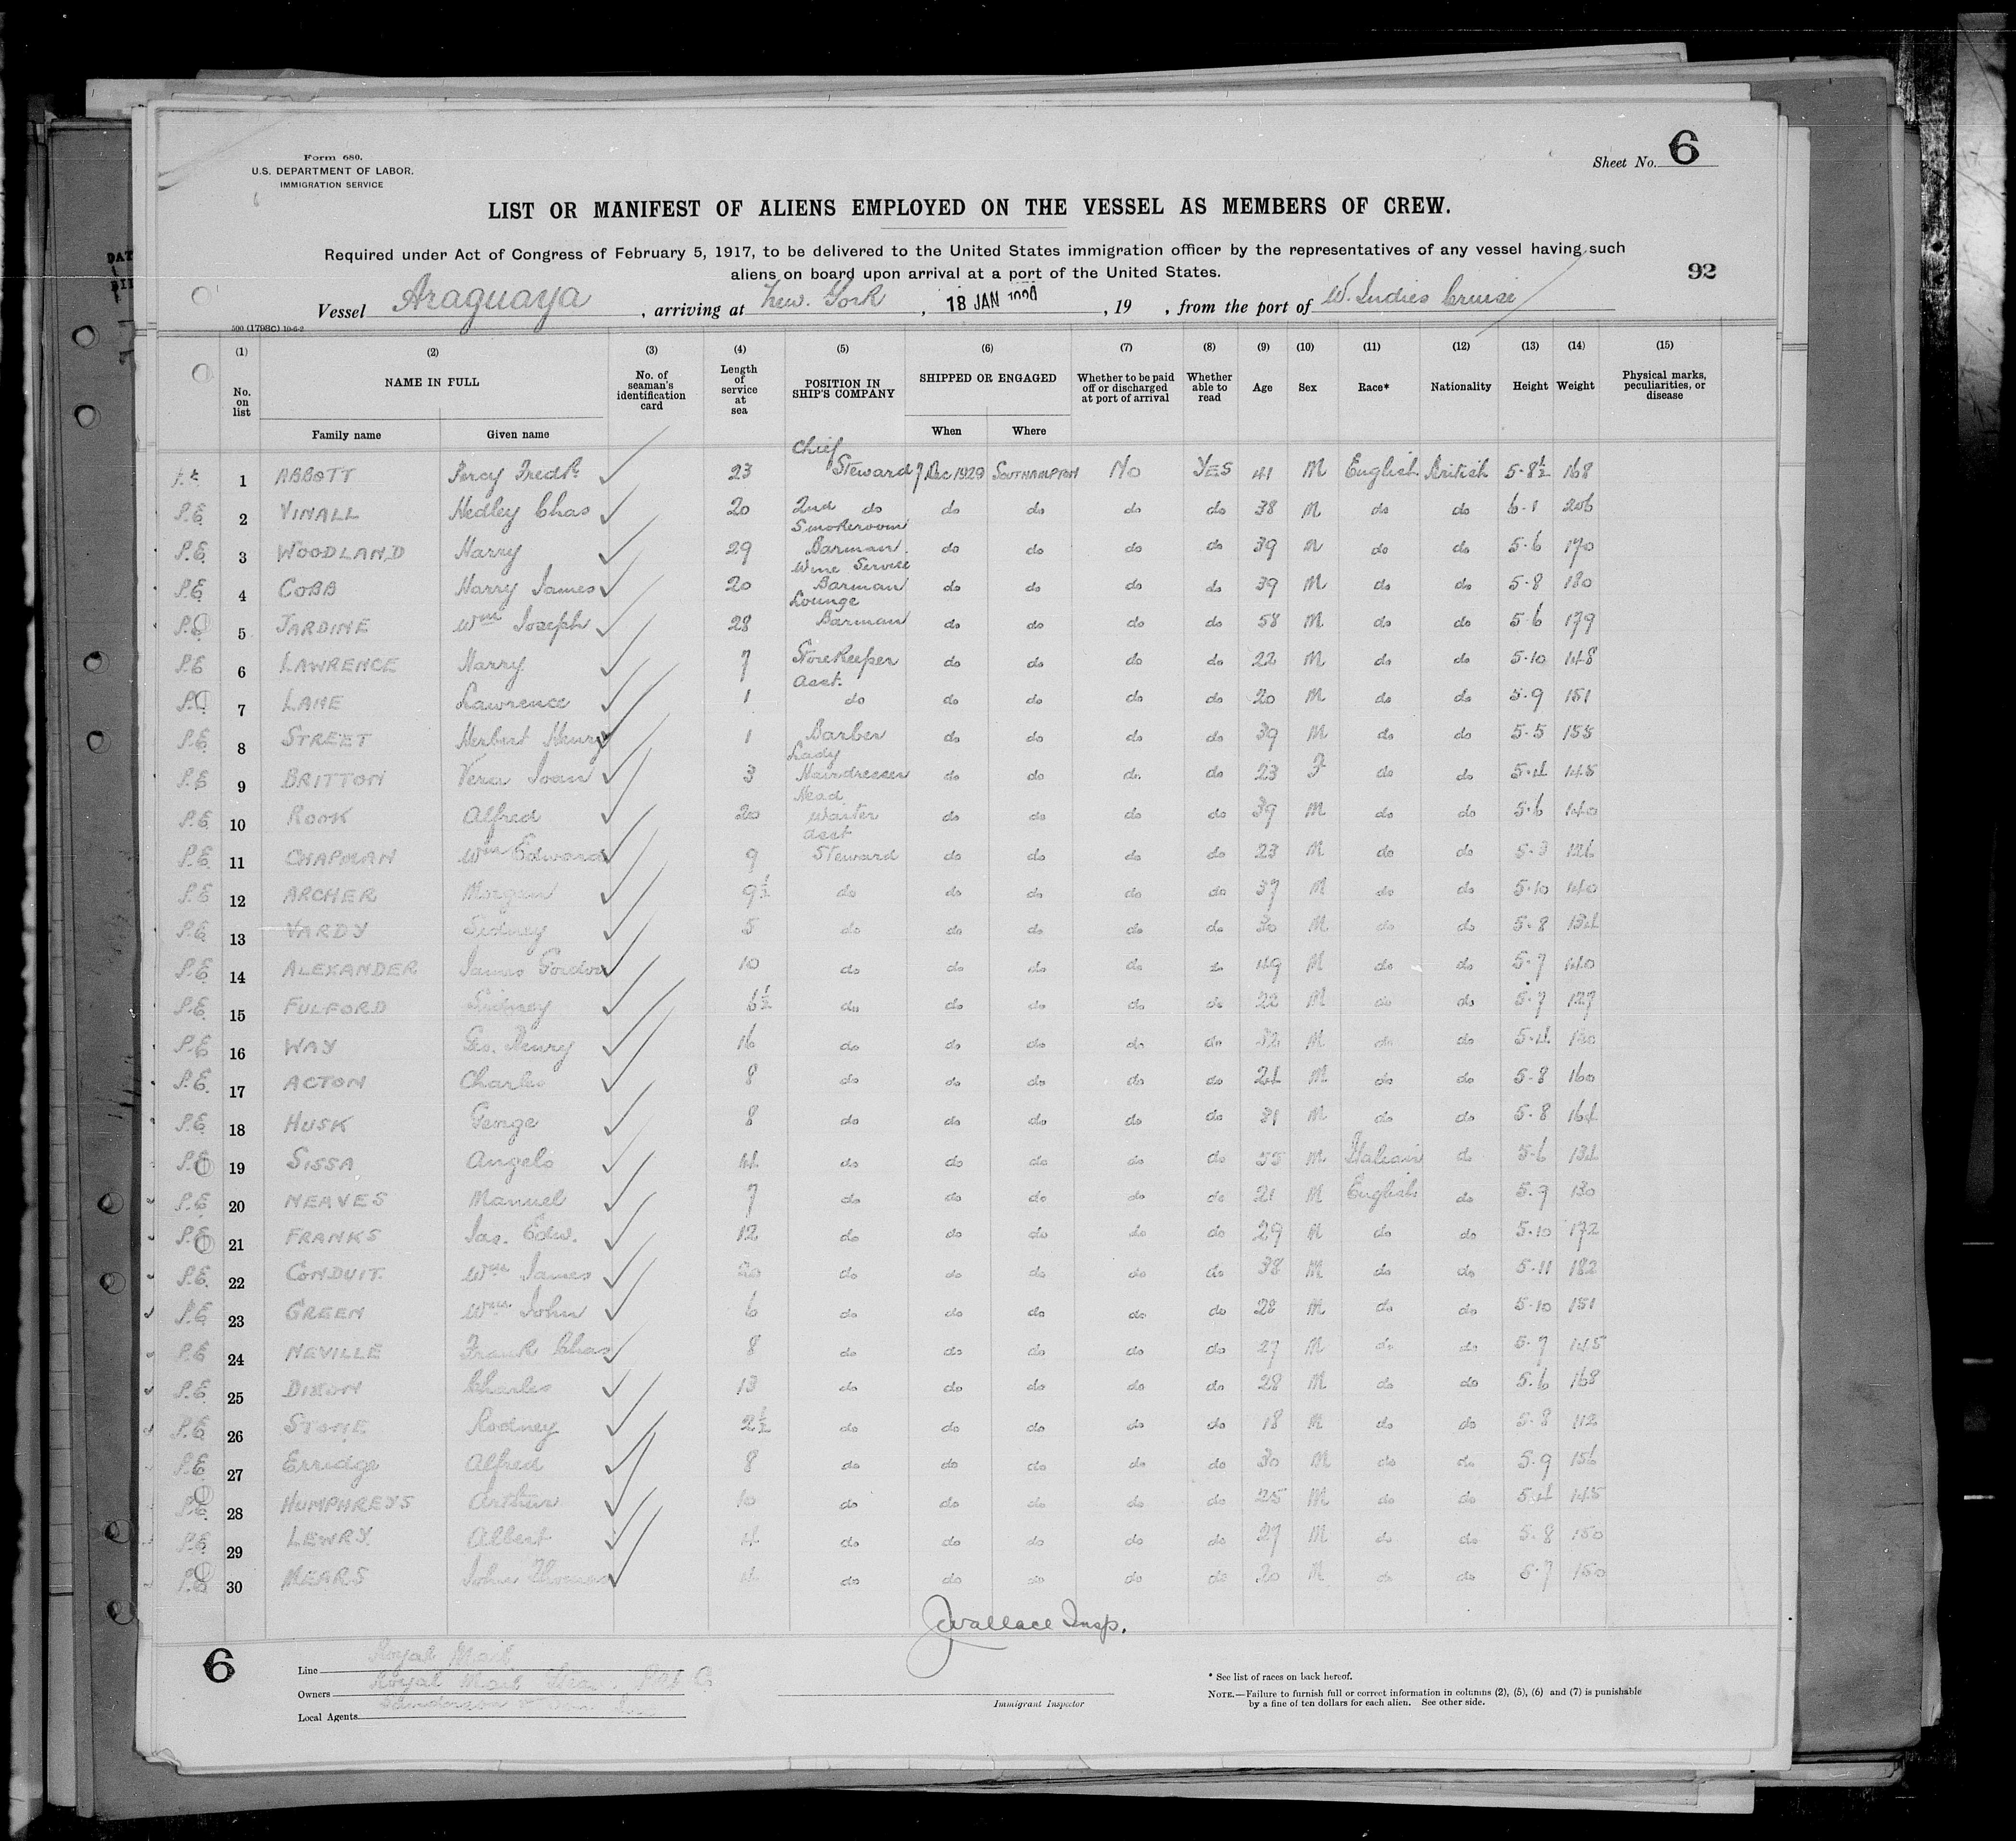 Form 680.
U.S. DEPARTMENT OF LABOR.
IMMIGRATION SERVICE
Sheet No. 6
LIST OR MANIFEST OF ALIENS EMPLOYED ON THE VESSEL AS MEMBERS OF CREW.
Required under Act of Congress of February 5, 1917, to be delivered to the United States immigration officer by the representatives of any vessel having such
aliens on board upon arrival at a port of the United States.
92
Vessel Araguaya, arriving at New. York, 18 JAN, 19 , from the port of W. Indies Cruise
500 (1798C) 10-6-2
(1) (2) (3) (4) (5) (6) (7) (8) (9) (10) (11) (12) (13) (14) (15)
No. on list NAME IN FULL No. of seaman's identification card Length of service at sea POSITION IN SHIP'S COMPANY SHIPPED OR ENGAGED Whether to be paid off or discharged at port of arrival Whether able to read Age Sex Race* Nationality Height Weight Physical marks, peculiarities, or disease
Family name Given name When Where
1 ABBOTT Percy Fredk. 23 Chief Steward 7 Dec 1929 SOUTHAMPTON No YES 41 M English British 5-8½ 168
P.E. 2 VINALL Hedley Chas 20 2nd do do do do do 38 M do do 6-1 206
P.E. 3 WOODLAND Harry 29 Smokeroom Barman do do do do 39 M do do 5-6 170
P.E. 4 COBB Harry James 20 Wine Service Barman do do do do 39 M do do 5-8 180
P.E. 5 JARDINE Wm Joseph 28 Lounge Barman do do do do 58 M do do 5-6 179
P.E 6 LAWRENCE Harry 7 Storekeeper do do do do 22 M do do 5-10 148
P.E. 7 LANE Lawrence 1 Asst. do do do do do 20 M do do 5-9 151
P.E. 8 STREET Herbert Henry 1 Barber do do do do 39 M do do 5-5 155
P.E 9 BRITTON Vera Joan 3 Lady Hairdresser do do do. do 23 F do do 5-4 145
P.E. 10 ROOK Alfred 20 Head Waiter do do do do 39 M do do 5-6 140
P.E. 11 CHAPMAN Wm Edward 9 Asst Steward do do do do 23 M do do 5-3 126
P.E 12 ARCHER Morgan 9½ do do do do do 37 M do do 5-10 140
P.E. 13 VARDY Sidney 5 do do do do do 30 M do do 5-8 134
P.E. 14 ALEXANDER James Gordon 10 do do do do do 49 M do do 5-7 140
P.E. 15 FULFORD Sidney 6½ do do do do do 22 M do do 5-7 127
P.E 16 WAY Geo. Henry 16 do do do do do 32 M do do 5-4
P.E. 17 ACTON Charles 8 do do do do do 24 M do do 5-8 160
P.E. 18 HUSK George 8 do do do do do 31 M do do 5-8 164
P.E 19 SISSA Angelo 44 do do do do do 55 M Italian do 5-6 134
P.E 20 NEAVES Manuel 7 do do do do do 21 M English do 5-9 130
P.E. 21 FRANKS Jas. Edw. 12 do do do do do 29 M do do 5-10 172
P.E. 22 CONDUIT. Wm James 20 do do do do do 38 M do do 5-11 182
P.E 23 GREEN Wm John 6 do do do do do 28 M do do 5-10 151
P.E 24 NEVILLE Frank Chas 8 do do do do do 27 M do do 5-7 145
P.E. 25 DIXON Charles 13 do do do do do 28 M do do 5-6 168
P.E. 26 STONE Rodney 2½ do do do do do 18 M do do 5-8 112
P.E. 27 Erridge Alfred 8 do do do do do 30 M do do 5-9 156
P.E. 28 HUMPHREYS Arthur 10 do do do do do 25 M do do 5-4 145
P.E. 29 LEWRY. Albert 4 do do do do do 27 M do do 5-8 150
P.E 30 MEARS John Thomas 4 do do do do do 20 M do do 5-7 150
JWallace Insp.
6
Line Royal Mail
Owners Royal Mail
Local Agents
Immigrant Inspector
* See list of races on back hereof.
NOTE.—Failure to furnish full or correct information in columns (2), (5), (6) and (7) is punishable
by a fine of ten dollars for each alien. See other side.